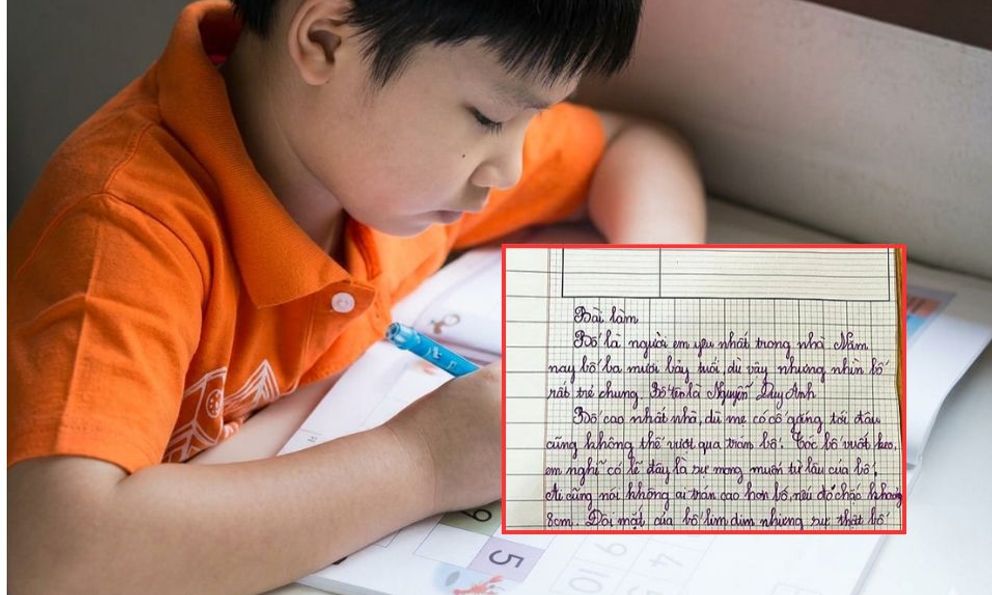 Bài làm
Bố là người em yêu nhất trong nhà. Năm
nay bố ba mươi bảy tuổi, dù vậy nhưng nhìn bố
rất trẻ chung. Bố tên là Nguyễn Duy Anh
Bố cao nhất nhà, dù mẹ có cố gắng tới đâu
cũng không thể vượt qua trán bố. Tóc bố vuốt keo,
em nghĩ có lẽ đây là sự mong muốn từ lâu của bố.
Ai cũng nói không ai trán cao hơn bố, nếu đo chắc khoảng
8cm. Đôi mắt của bố lim dim nhưng sự thật bố
5
4
10